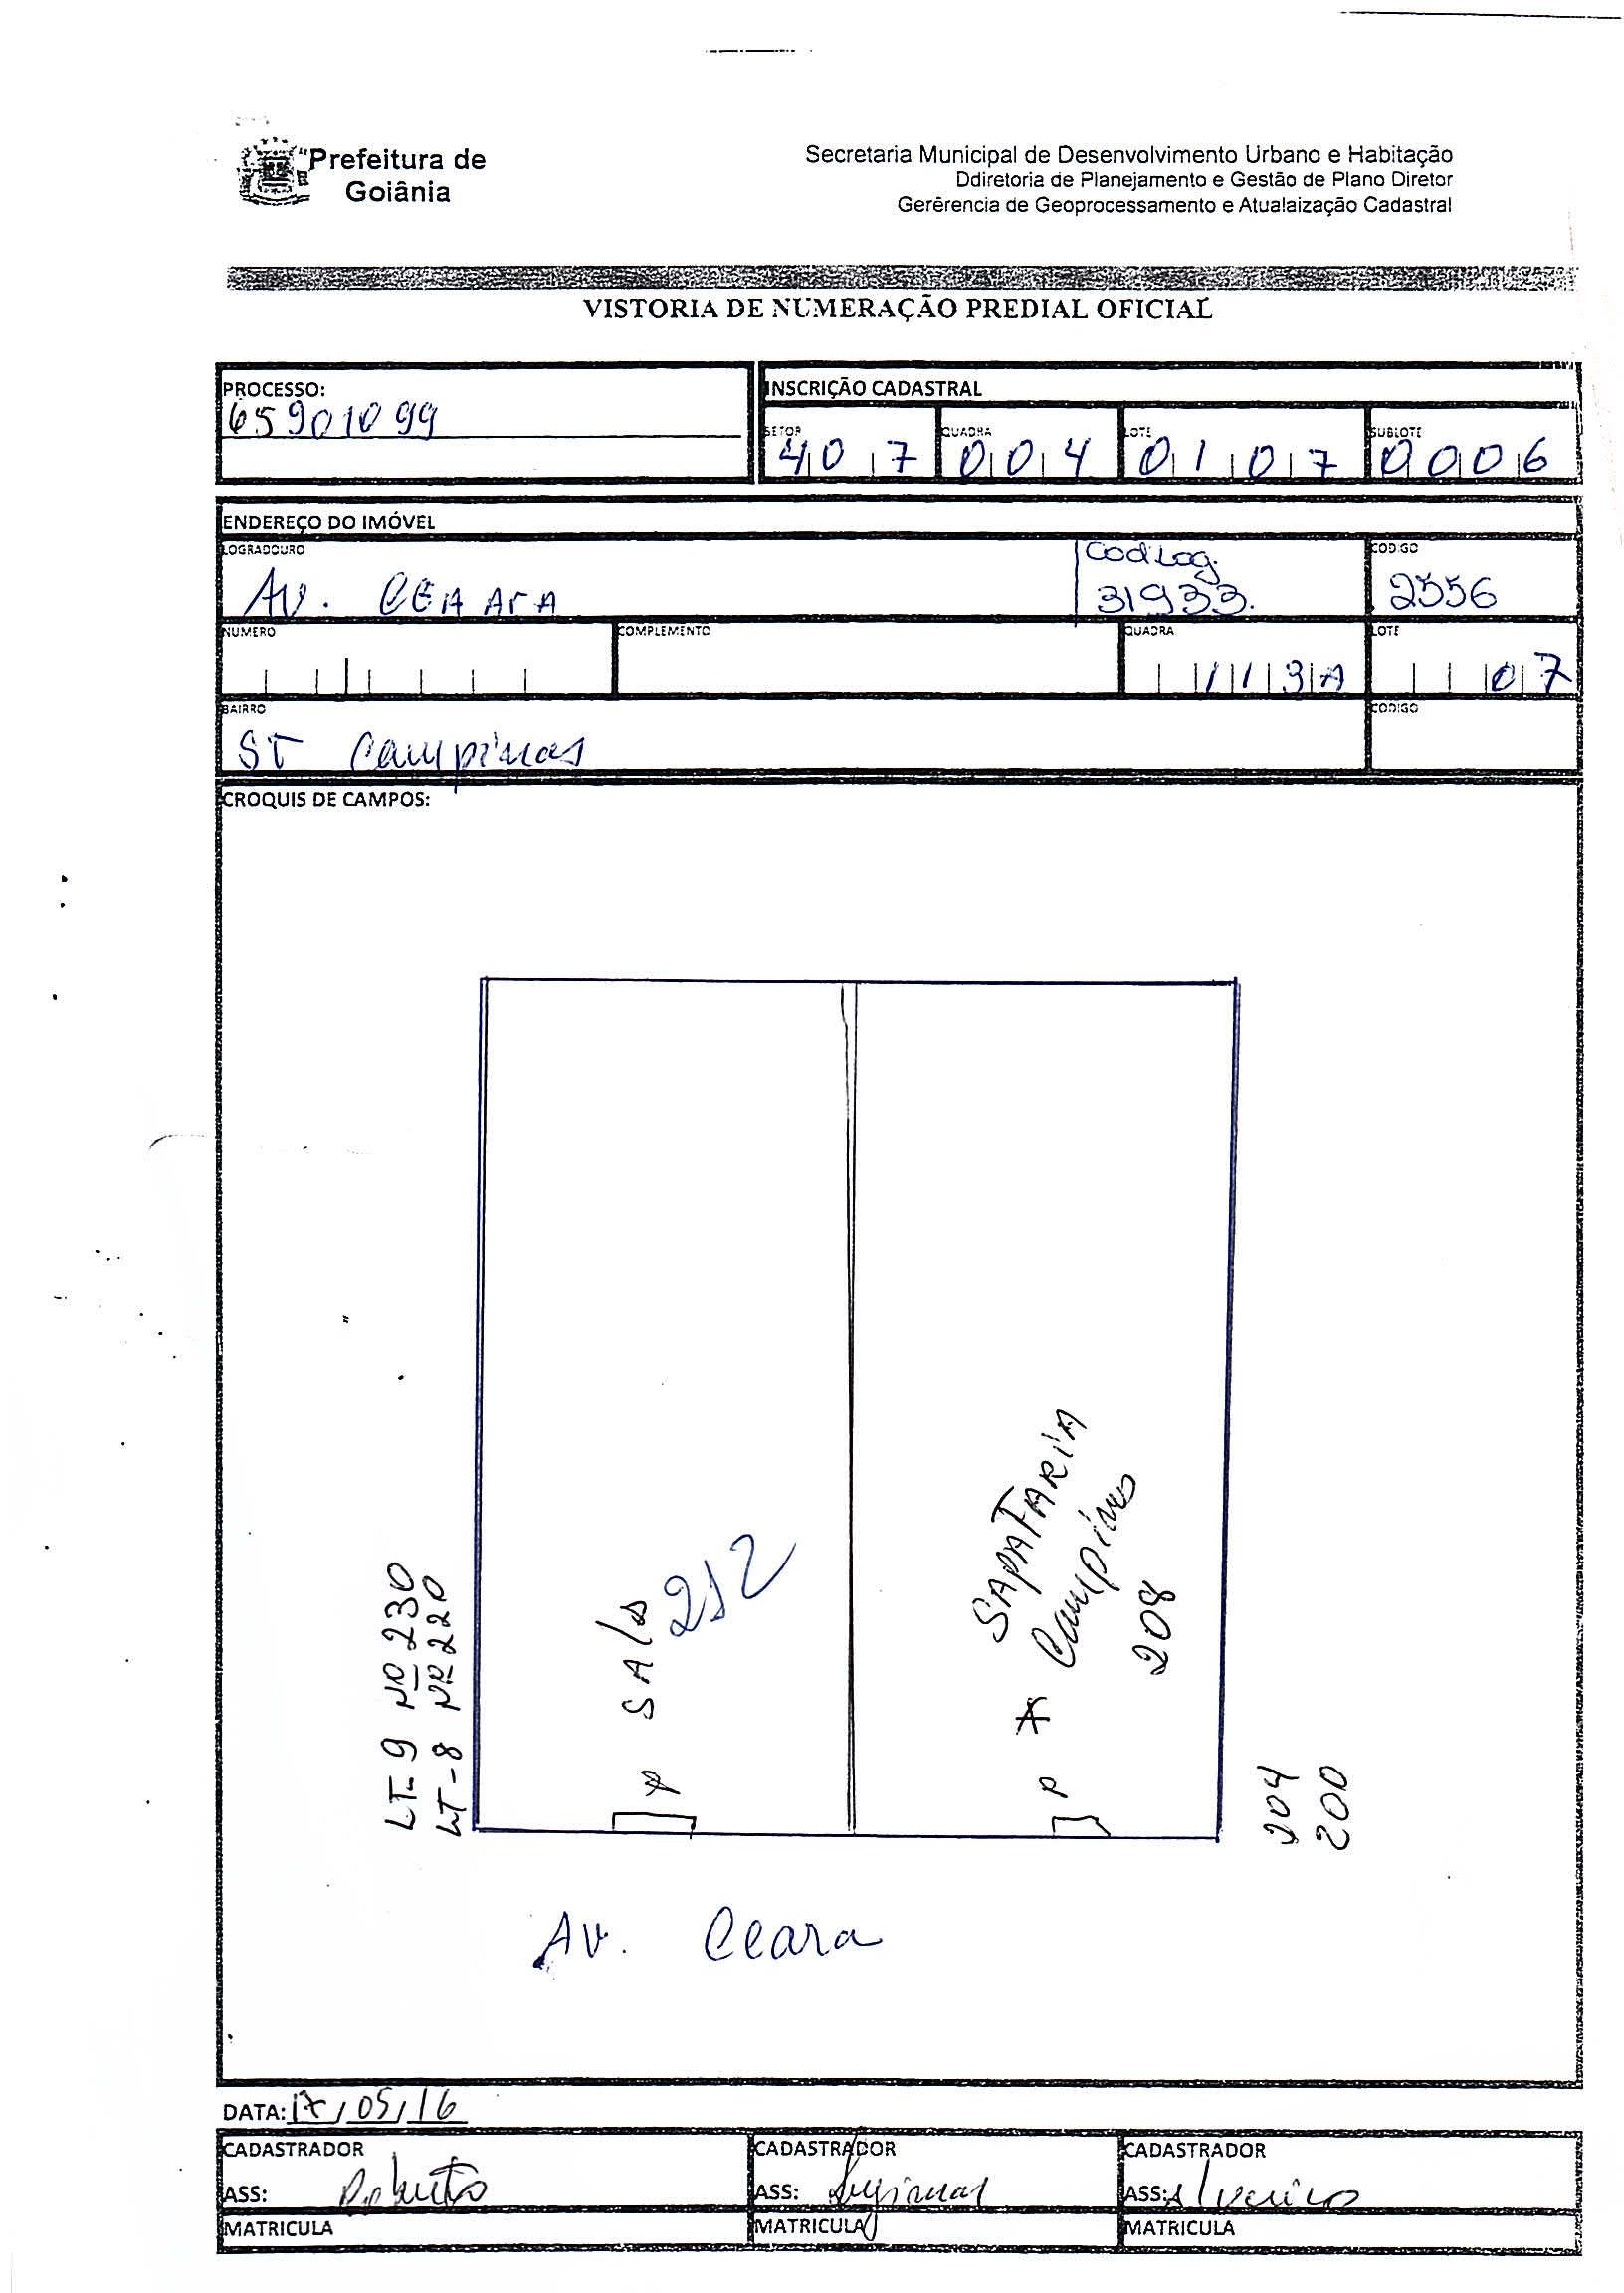 Prefeitura de
Goiânia
Secretaria Municipal de Desenvolvimento Urbano e Habitação
Ddiretoria de Planejamento e Gestão de Plano Diretor
Gerêrencia de Geoprocessamento e Atualaização Cadastral
VISTORIA DE NUMERAÇÃO PREDIAL OFICIAL
PROCESSO:
65901099
INSCRIÇÃO CADASTRAL
SETOR QUADRA LOTE SUBLOTE
407 004 0107 0006
ENDEREÇO DO IMÓVEL
LOGRADOURO CodLog. CODIGO
AV. CEARA 31933. 2556
NUMERO COMPLEMENTO QUADRA LOTE
113A 07
BAIRRO CODIGO
ST Campinas
CROQUIS DE CAMPOS:
LT-9 Nº 230
LT-8 Nº 220
P SALA
212
P * SAPATARIA
Campinas
208
204
200
Av. Ceara
DATA: 17/05/16
CADASTRADOR CADASTRADOR CADASTRADOR
ASS: Roberto ASS: ASS:
MATRICULA MATRICULA MATRICULA